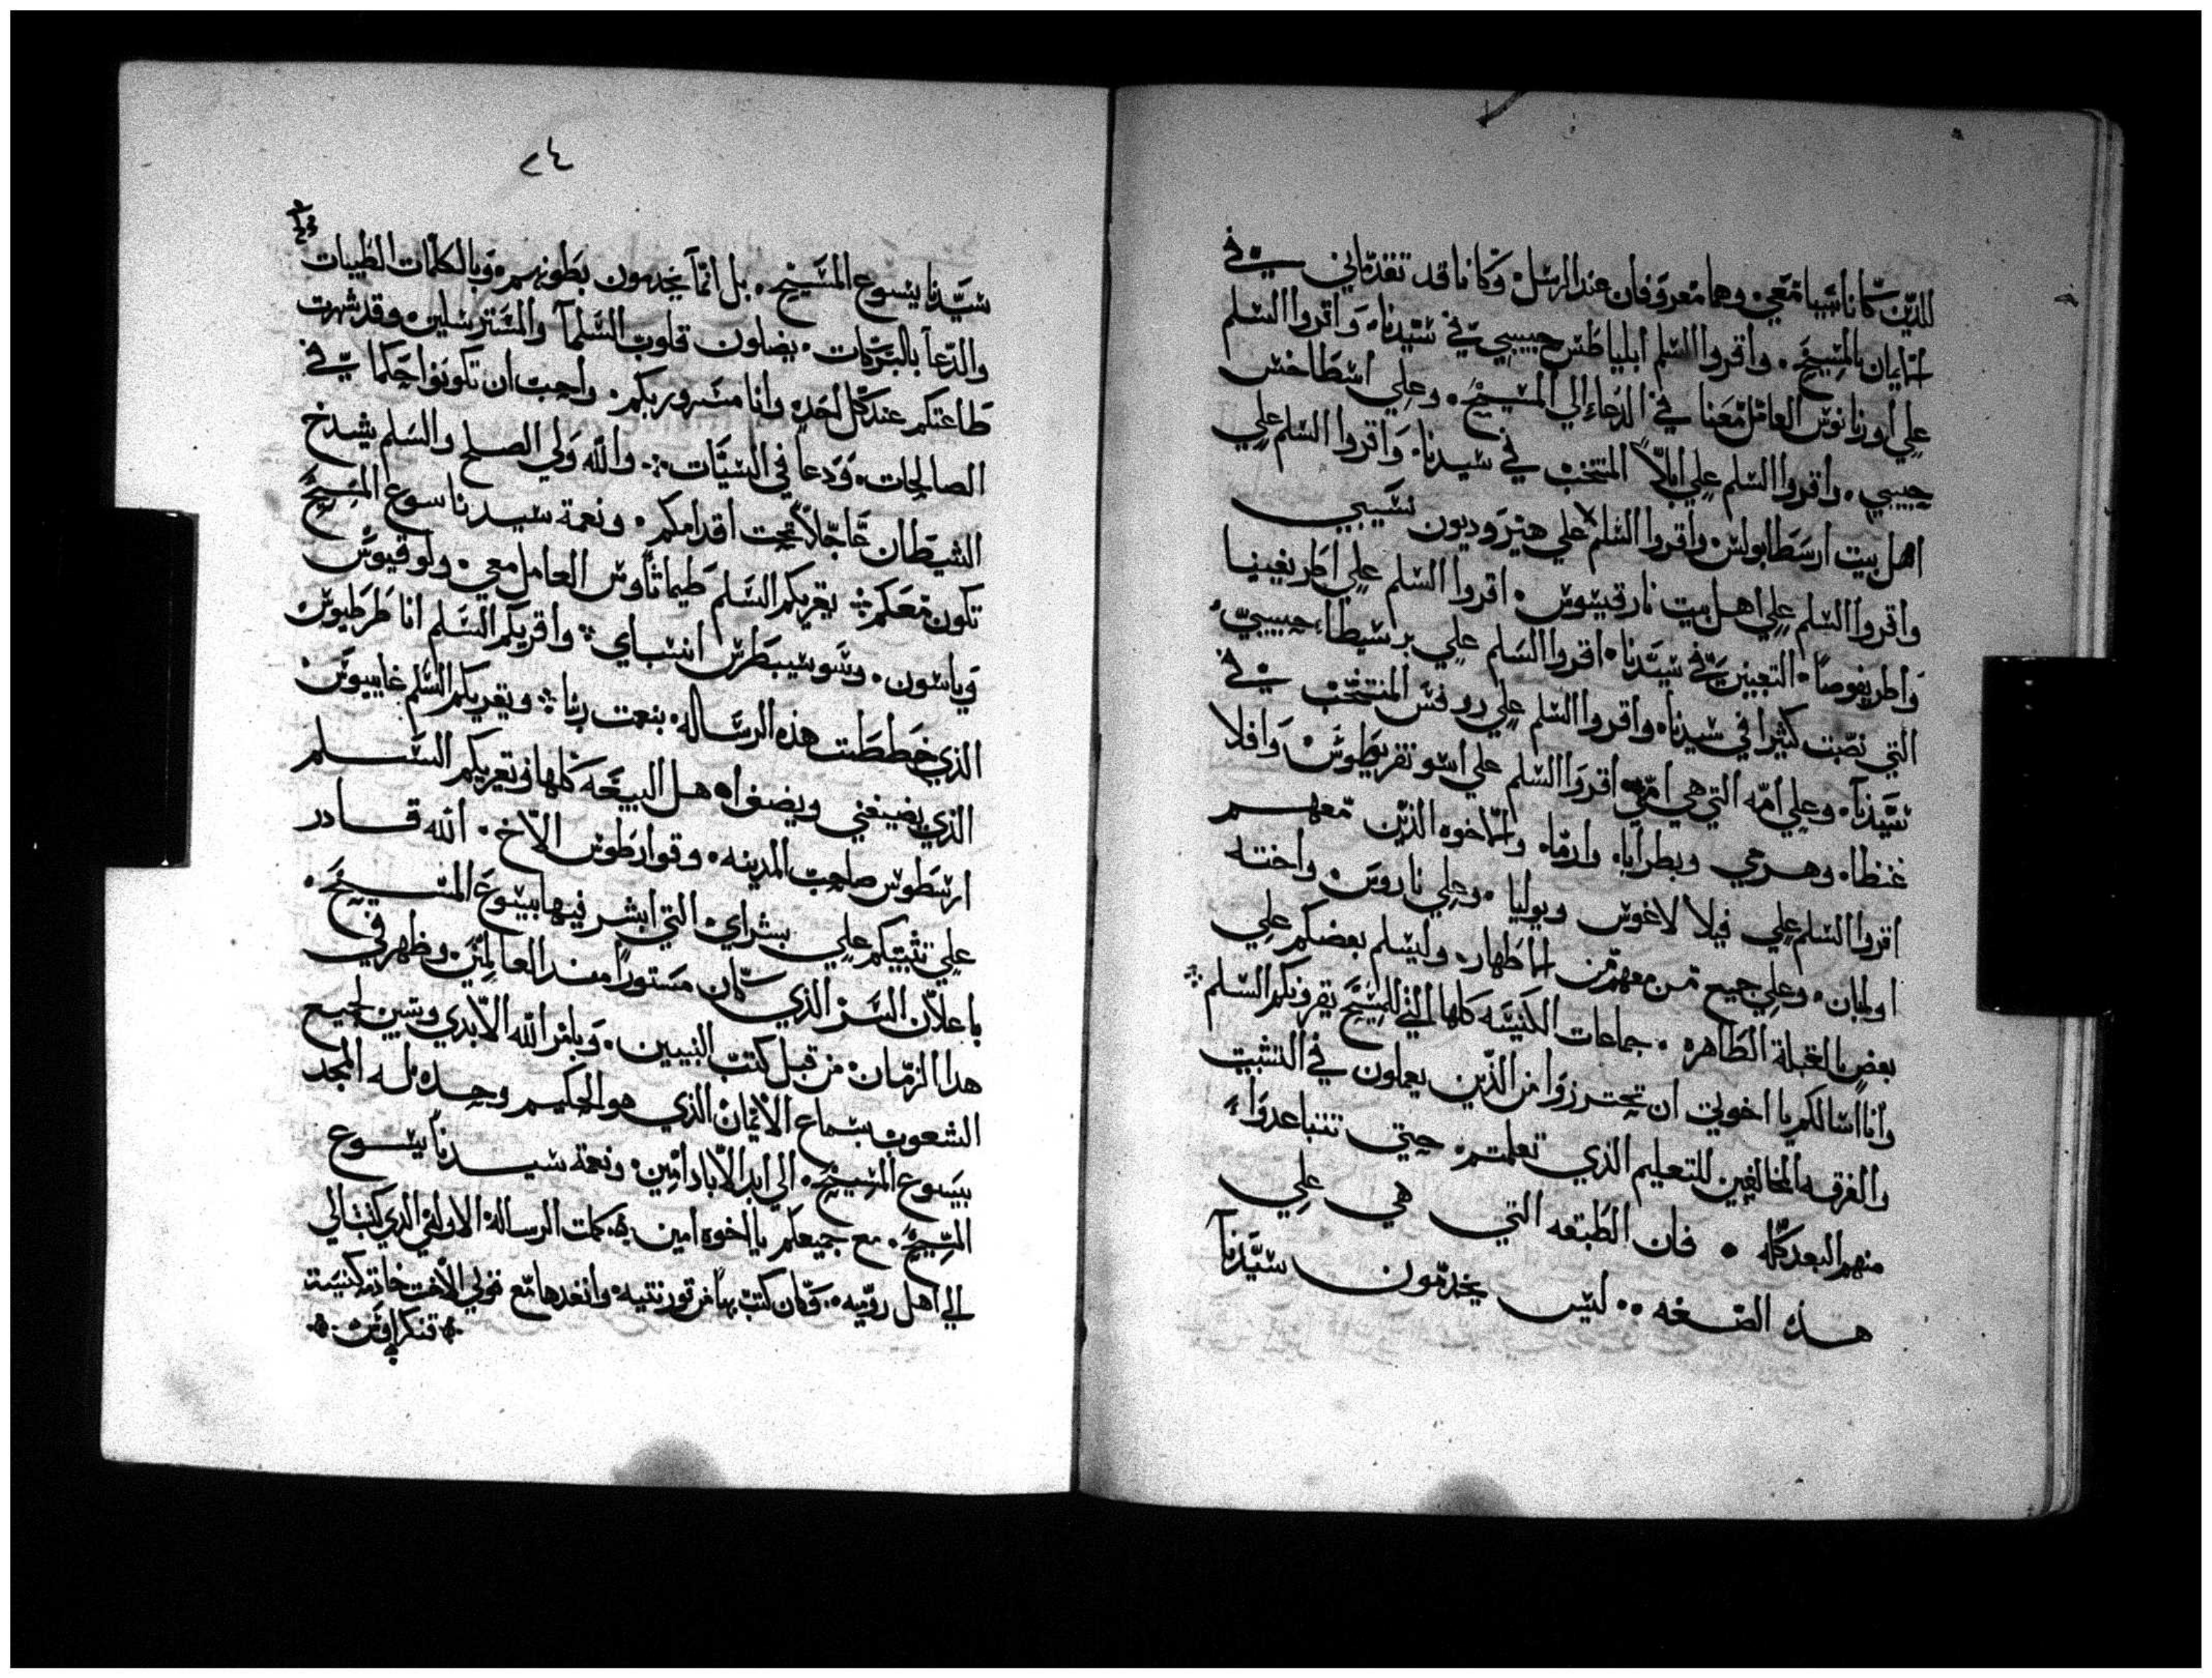 للذين كانا سبيا معي وهما معروفان عند الرسل وكانا قد تقدماني في
ايمان بالمسيح. واقروا السلم ابلياطس حبيبي في سيدنا. واقروا السلم
علي اورنانوس العامل معنا في الدعاء الي المسيح. وعلي اسطاخس
حبيبي. واقروا السلم علي ابلا المنتخب في سيدنا. واقروا السلم علي
اهل بيت ارسطابولس واقروا السلم علي هيروديون نسيبي
واقروا السلم علي اهل بيت نارقيسوس. اقروا السلم علي اطريفينيا
واطريفوصا. التعبتين في سيدنا. اقروا السلم علي برسيطا حبيبتي
التي نصبت كثيرا في سيدنا. واقروا السلم علي روفس المنتخب في
سيدنا. وعلي امه التي هي امي. اقروا السلم علي اسونقريطوس وافلا
غنطا. وهرمي وبطرابا. وارما. والاخوه الذين معهم
اقروا السلم علي فيلالاغوس ويوليا. وعلي ناروس واخته
اولمبان. وعلي جميع من معهم من الاطهار. وليسلم بعضكم علي
بعض بالقبلة الطاهره. جماعات الكنيسه كلها التي للمسيح يقرونكم السلم
وانا اسالكم يا اخوتي ان تحترزوا من الذين يعملون في التشتيت
والفرقه المخالفين للتعليم الذي تعلمتم. حيتي تتباعدوا
منهم البعد كله. فان الطبقه التي هي علي
هذه الصفه.. ليس يخدمون سيدنا
٢٤
سيدنا يسوع المسيح. بل انما يخدمون بطونهم. وبالكلمات الطيبات
والدعا بالبركات. يضلون قلوب السلما والمسترسلين. وقد شهرت
طاعتكم عند كل احد. وانا مسرور بكم. واحب ان تكونوا حكما في
الصالحات. ودعا في السيات. والله ولي الصلح والسلم يشدخ
الشيطان عاجلا تحت اقدامكم. ونعمة سيدنا يسوع المسيح
تكون معكم. يقريكم السلم طيماثاوس العامل معي. ولوقيوس
وياسون. وسوسيبطرس انسباي. واقريكم السلم انا طرطيوس
الذي خططت هذه الرساله. بنعمت ربنا. ويقريكم السلم غايبوس
الذي يضيفني ويضف اهل البيعه كلها. ويقريكم السلم
ارسطوس صاحب المدينه. وقوارطوس الاخ. الله قادر
علي تثبيتكم علي بشراي. التي ابشر فيها بيسوع المسيح.
باعلان السر الذي كان مستورا منذ العالمين. وظهر في
هدا الزمان من قبل كتب النبيين. وبامر الله الابدي وتبين لجميع
الشعوب بسماع الايمان الذي هو الحكيم وحده له المجد
بيسوع المسيح. الي ابد الاباد امين. ونعمة سيدنا يسوع
المسيح. مع جميعكم يا اخوه امين. كملت الرساله الاولي الذي كتب الي
الي اهل روميه. وكان كتب بها من قورنتيه. وانفدها مع فولي الاخت خادمه كنيسة
قنكراوس